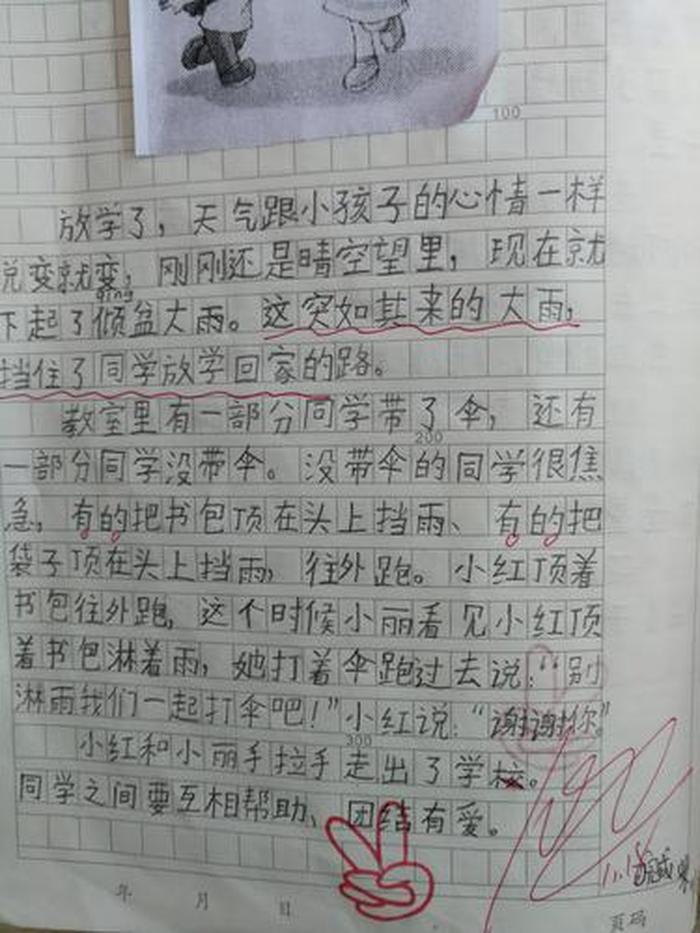 100
放学了，天气跟小孩子的心情一样
说变就变，刚刚还是晴空望里，现在就
qing
下起了倾盆大雨。这突如其来的大雨，
挡住了同学放学回家的路。
教室里有一部分同学带了伞，还有
200
一部分同学没带伞。没带伞的同学很焦
急，有的把书包顶在头上挡雨、有的把
袋子顶在头上挡雨，往外跑。小红顶着
书包往外跑，这个时候小丽看见小红顶
着书包淋着雨，她打着伞跑过去说：“别
淋雨我们一起打伞吧！”小红说：“谢谢你。”
300
小红和小丽手拉手走出了学校。
同学之间要互相帮助、团结有爱。
100
年 月 日
页码